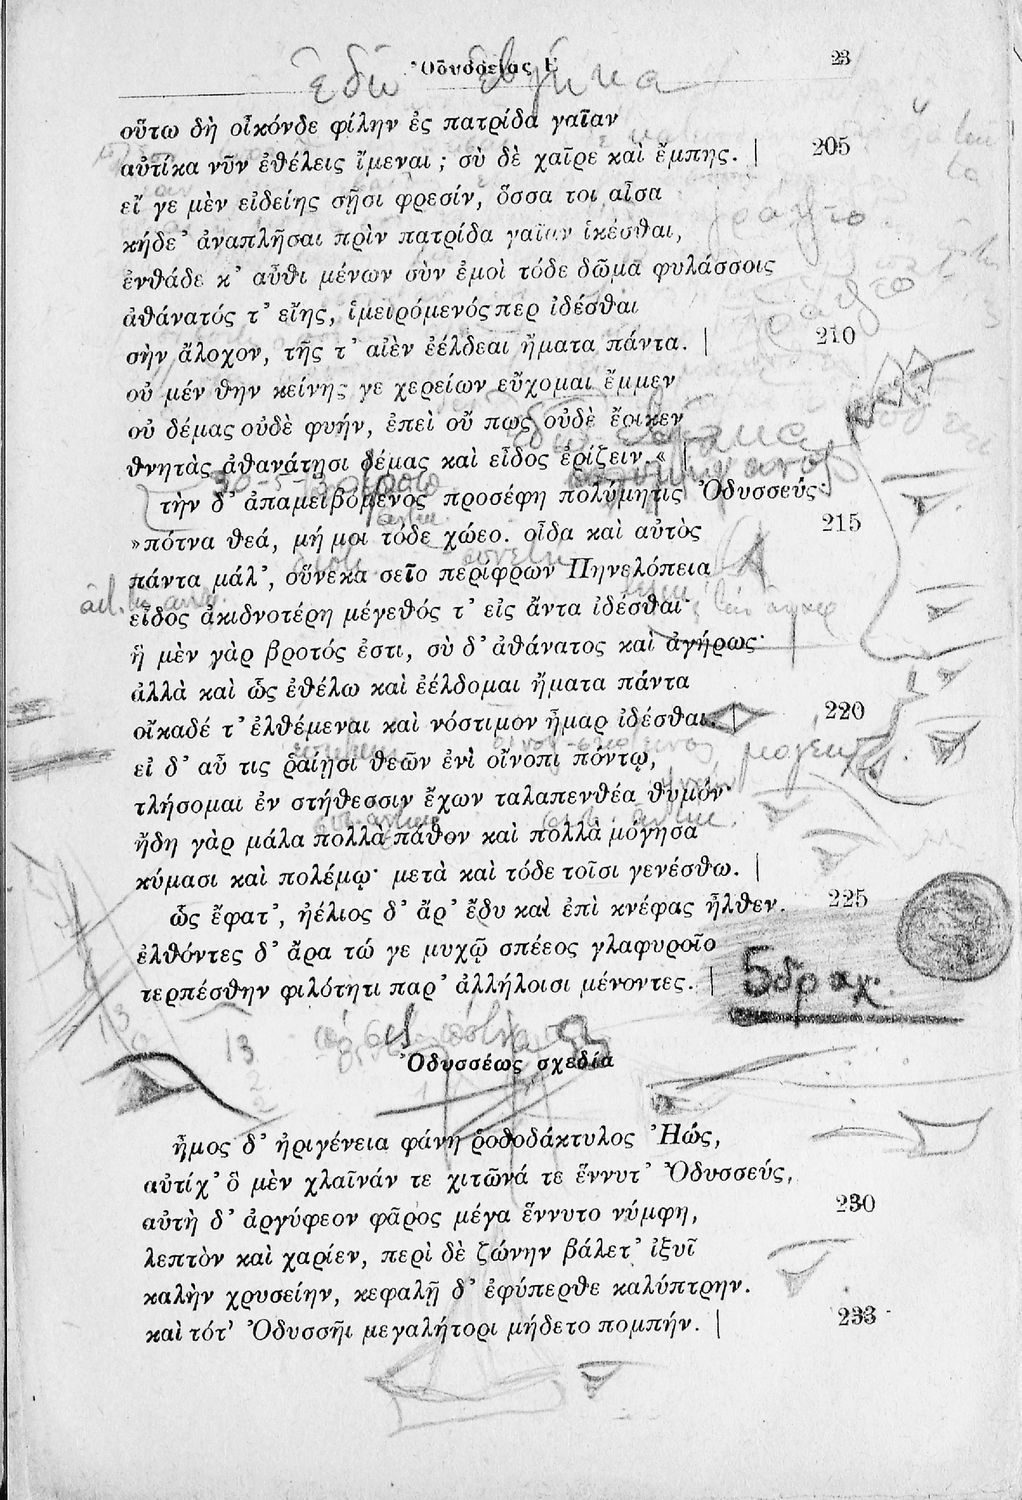 Ὀδυσσείας Ε 23
ἐδῶ ἔβγηκα
οὕτω δὴ οἶκόνδε φίλην ἐς πατρίδα γαῖαν
αὐτίκα νῦν ἐθέλεις ἴμεναι ; σὺ δὲ χαῖρε καὶ ἔμπης. | 205
εἴ γε μὲν εἰδείης σῇσι φρεσίν, ὅσσα τοι αἶσα
κήδε’ ἀναπλῆσαι πρὶν πατρίδα γαῖαν ἱκέσθαι,
ἐνθάδε κ’ αὖθι μένων σὺν ἐμοὶ τόδε δῶμα φυλάσσοις
ἀθάνατός τ’ εἴης, ἱμειρόμενός περ ἰδέσθαι
σὴν ἄλοχον, τῆς τ’ αἰὲν ἐέλδεαι ἤματα πάντα. | 210
οὐ μέν θην κείνης γε χερείων εὔχομαι ἔμμεν
οὐ δέμας οὐδὲ φυήν, ἐπεὶ οὔ πως οὐδὲ ἔοικεν
θνητὰς ἀθανάτῃσι δέμας καὶ εἶδος ἐρίζειν.« |
τὴν δ’ ἀπαμειβόμενος προσέφη πολύμητις Ὀδυσσεύς·
»πότνα θεά, μή μοι τόδε χώεο. οἶδα καὶ αὐτὸς 215
πάντα μάλ’, οὕνεκα σεῖο περίφρων Πηνελόπεια
εἶδος ἀκιδνοτέρη μέγεθός τ’ εἰς ἄντα ἰδέσθαι·
ἣ μὲν γὰρ βροτός ἐστι, σὺ δ’ ἀθάνατος καὶ ἀγήρως·
ἀλλὰ καὶ ὧς ἐθέλω καὶ ἐέλδομαι ἤματα πάντα
οἴκαδέ τ’ ἐλθέμεναι καὶ νόστιμον ἦμαρ ἰδέσθαι. | 220
εἰ δ’ αὖ τις ῥαίῃσι θεῶν ἐνὶ οἴνοπι πόντῳ,
τλήσομαι ἐν στήθεσσιν ἔχων ταλαπενθέα θυμόν·
ἤδη γὰρ μάλα πολλὰ πάθον καὶ πολλὰ μόγησα
κύμασι καὶ πολέμῳ· μετὰ καὶ τόδε τοῖσι γενέσθω. |
ὣς ἔφατ’, ἠέλιος δ’ ἄρ’ ἔδυ καὶ ἐπὶ κνέφας ἦλθεν. 225
ἐλθόντες δ’ ἄρα τώ γε μυχῷ σπέεος γλαφυροῖο
τερπέσθην φιλότητι παρ’ ἀλλήλοισι μένοντες. |
5 δραχ.
13
Ὀδυσσέως σχεδία
ἦμος δ’ ἠριγένεια φάνη ῥοδοδάκτυλος Ἠώς,
αὐτίχ’ ὃ μὲν χλαῖνάν τε χιτῶνά τε ἕννυτ’ Ὀδυσσεύς,
αὐτὴ δ’ ἀργύφεον φᾶρος μέγα ἕννυτο νύμφη, 230
λεπτὸν καὶ χαρίεν, περὶ δὲ ζώνην βάλετ’ ἰξυῖ
καλὴν χρυσείην, κεφαλῇ δ’ ἐφύπερθε καλύπτρην.
καὶ τότ’ Ὀδυσσῆι μεγαλήτορι μήδετο πομπήν. | 233